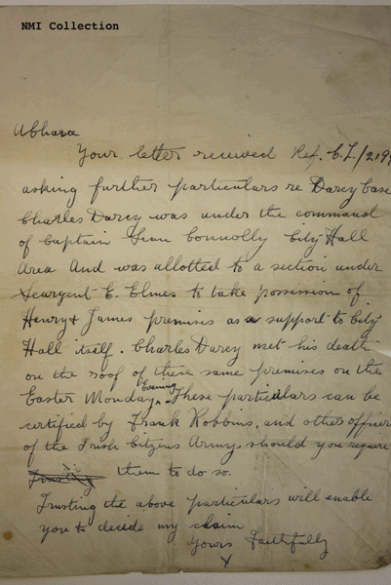 NMI Collection
Abhara
Your letter received Ref. C.L./219
asking further particulars re Darcy Case
Charles Darcy was under the command
of Captain Sean Connolly City Hall
Area And was allotted to a section under
Seargent E. Elmes to take possession of
Henry & James premises as a support to City
Hall itself. Charles Darcy met his death
on the roof of these same premises on the
Easter Monday Evening. These particulars can be
certified by Frank Robbins, and other officers
of the Irish Citizens Army, should you require
them to do so.
Trusting the above particulars will enable
you to decide my claim
Yours Faithfully